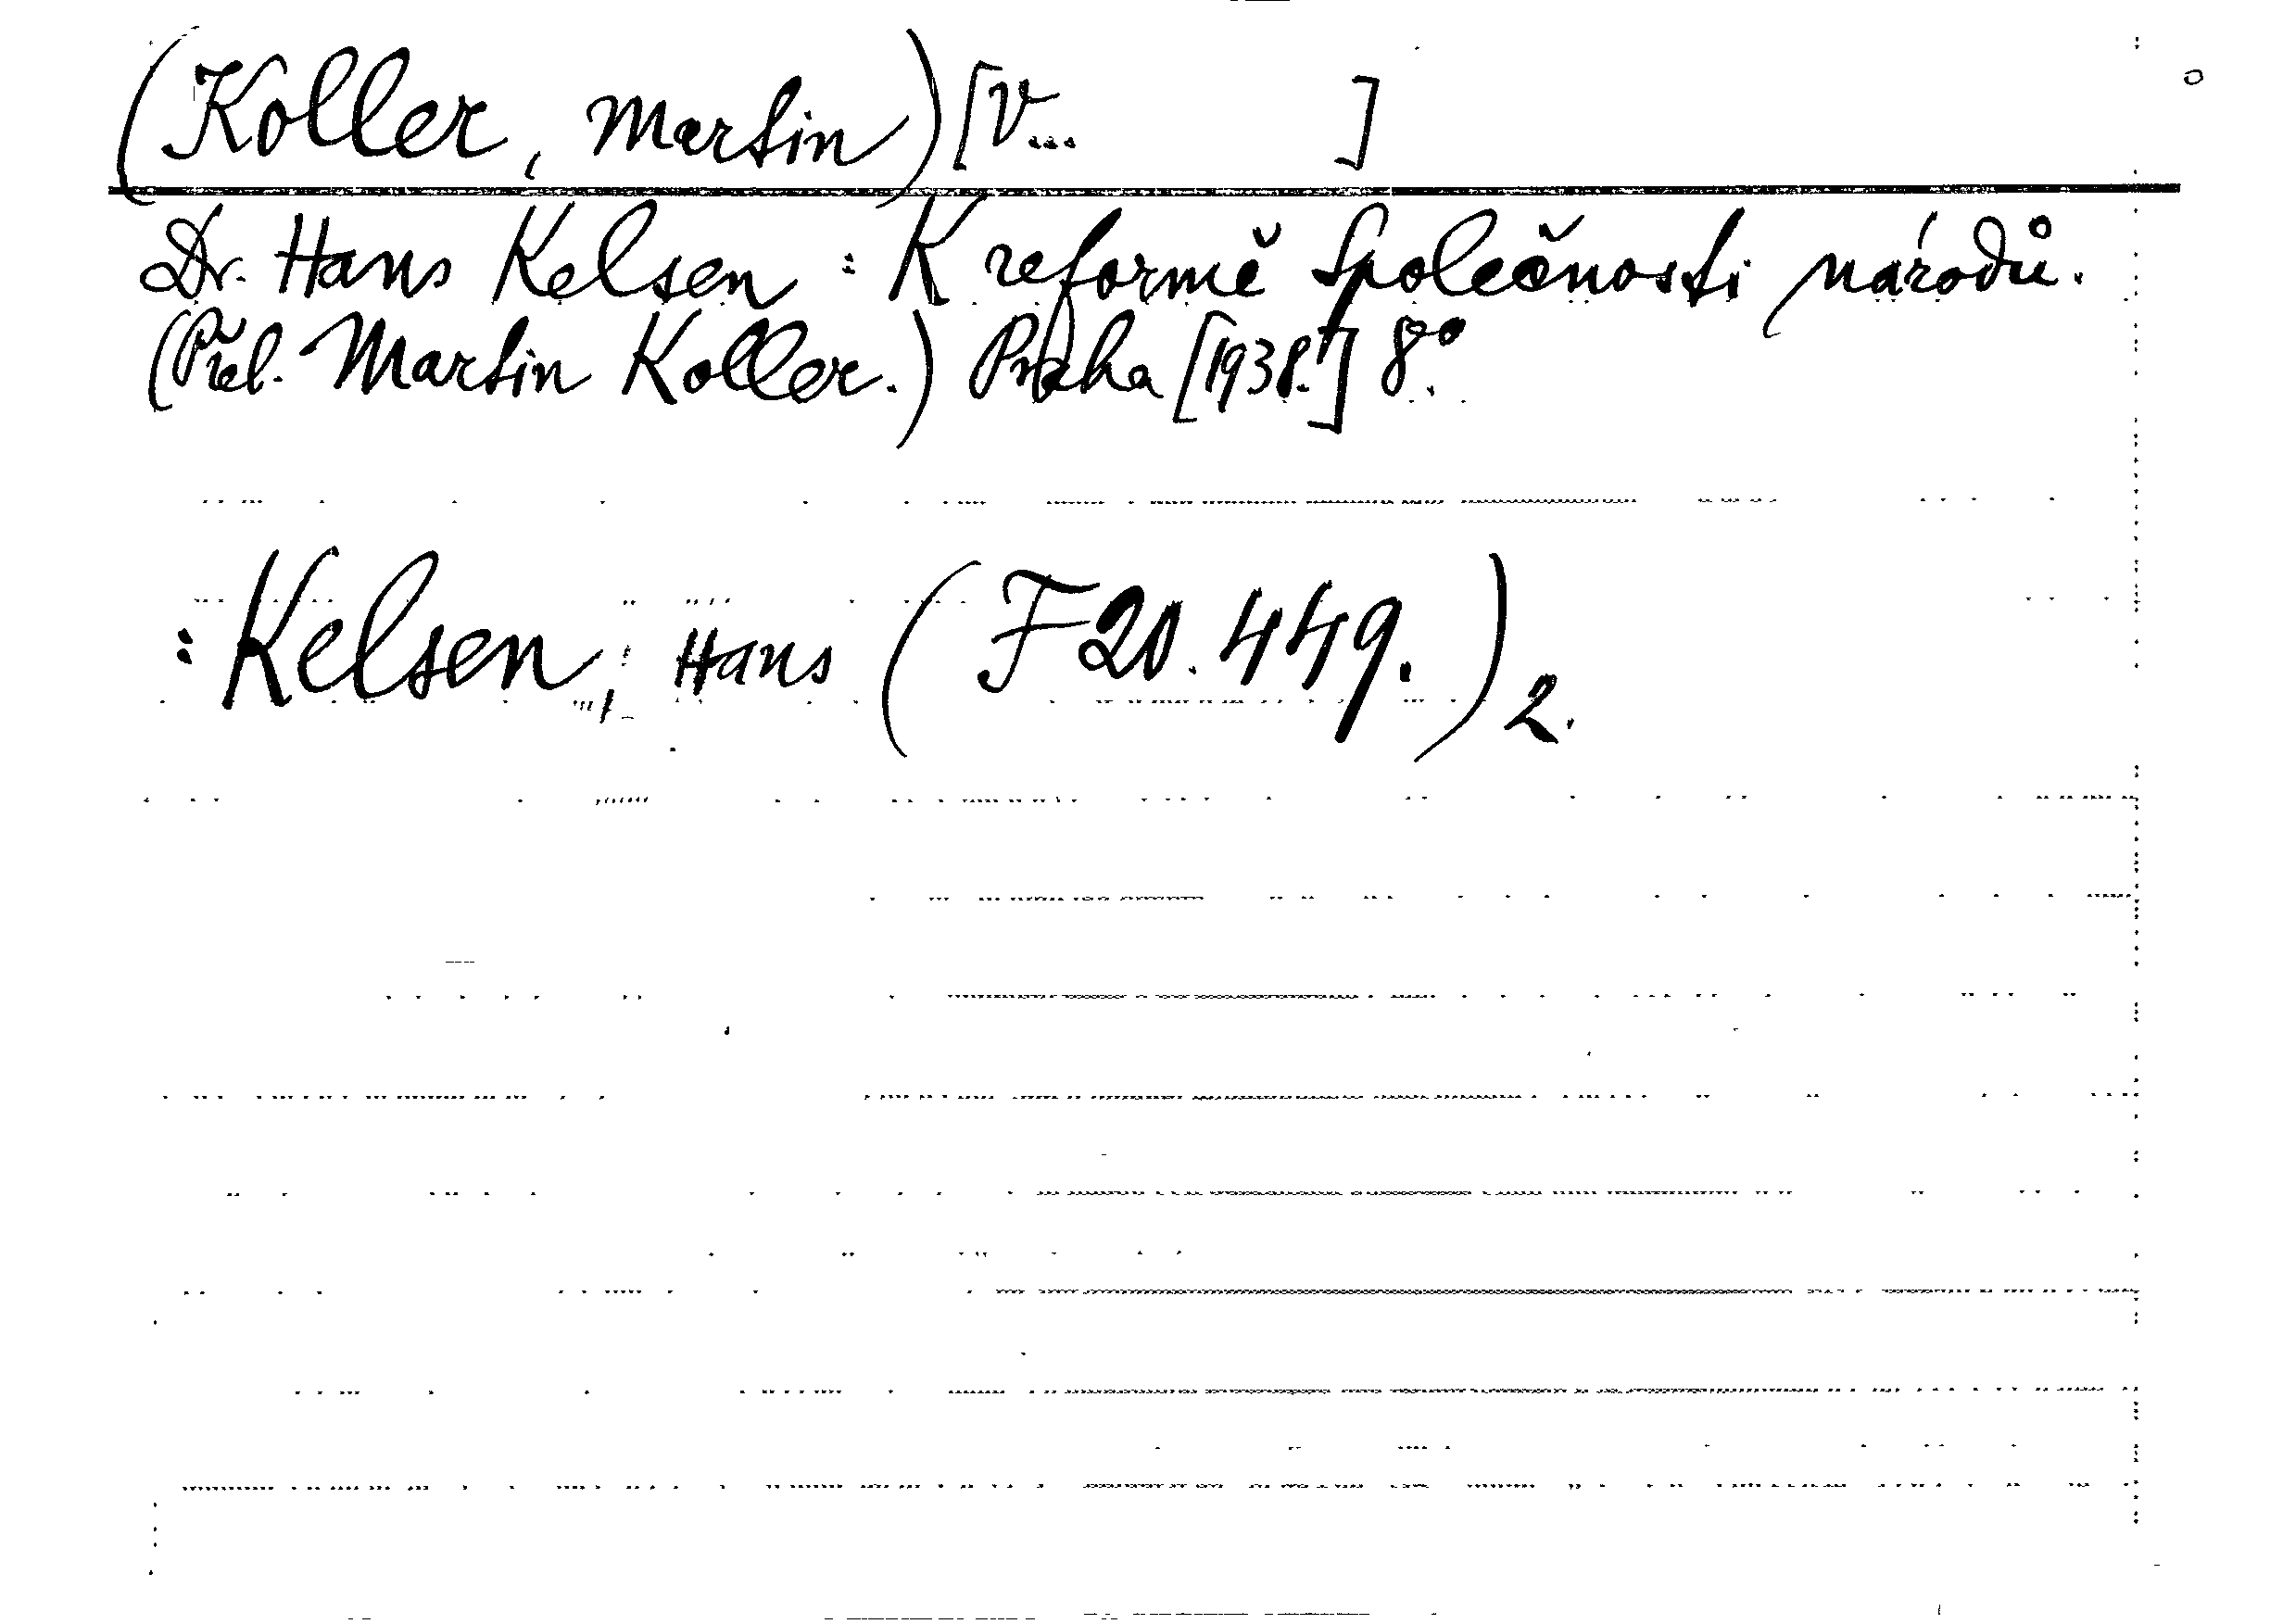 (Koller, Martin) [V... ]
Dr. Hans Kelsen : K reformě Společnosti národů.
(Přel. Martin Koller.) Praha [1938.] 8°.
: Kelsen, Hans (F 20.449.) 2.